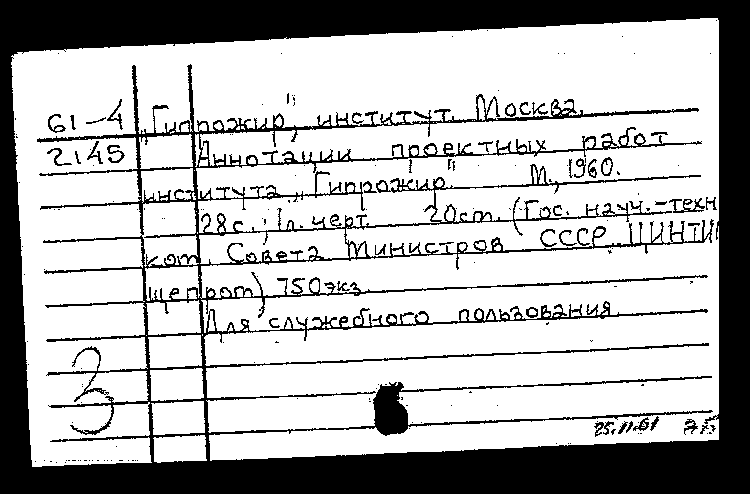 61-4 „Гипрожир", институт. Москва.
2145 Аннотации проектных работ
института „Гипрожир". М., 1960.
28с.; 1л. черт. 20см. (Гос. науч.-техн
ком. Совета Министров СССР ЦИНТИ
щепром) 750экз.
Для служебного пользования
3
25.11.61